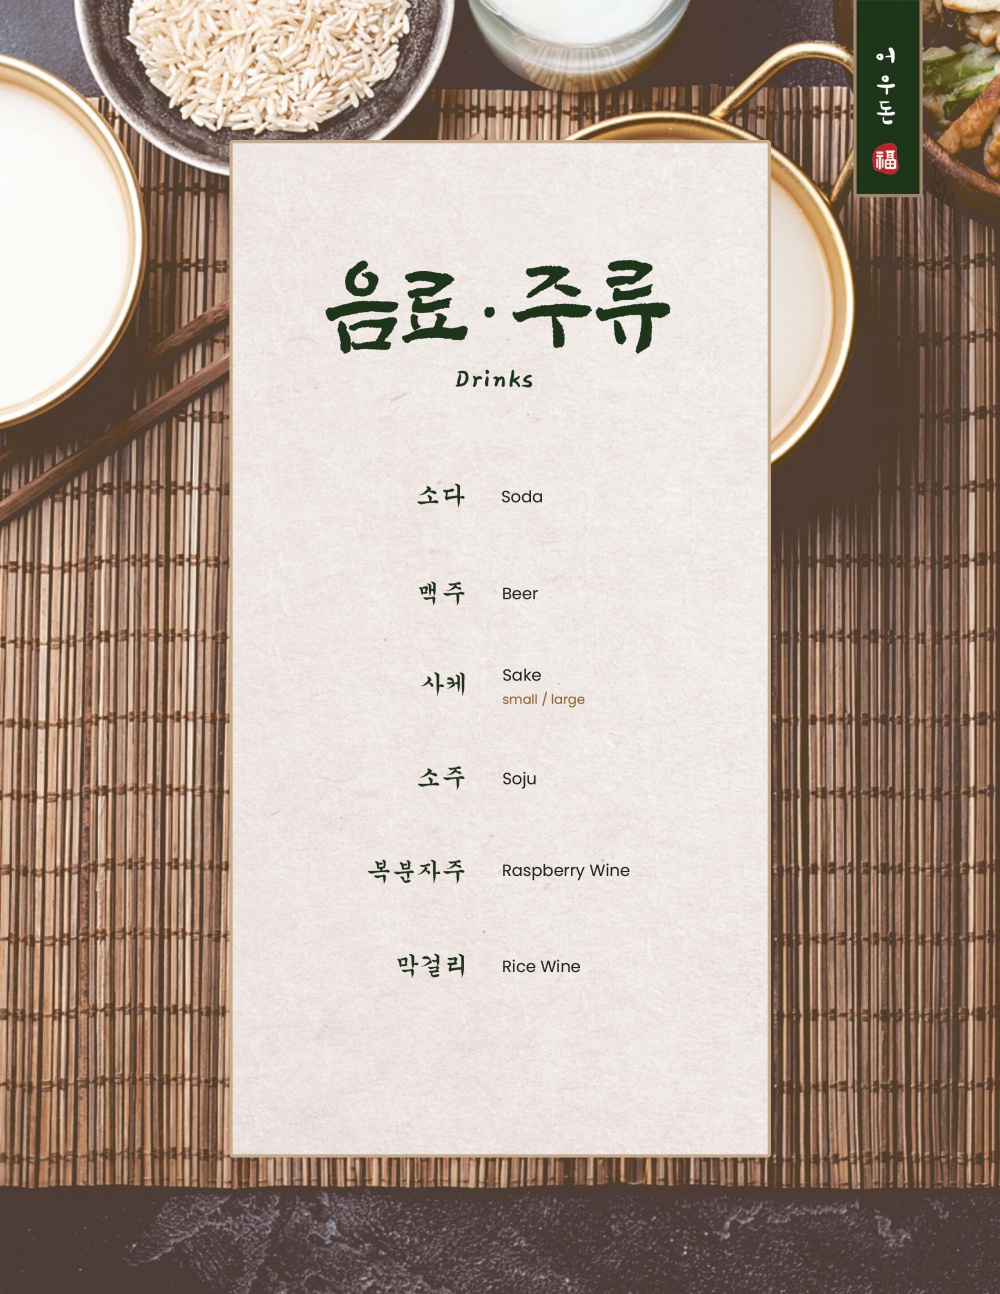 어우돈
福
음료·주류
Drinks
소다 Soda
맥주 Beer
사케 Sake
small / large
소주 Soju
복분자주 Raspberry Wine
막걸리 Rice Wine